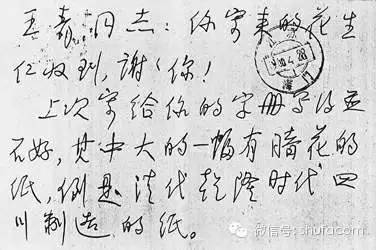 王青同志：你寄来的花生
仁收到，谢谢你！
上次寄给你的字册写得并
不好，其中大的一幅有暗花的
纸，倒是清代乾隆时代四
川制造的纸。
微信号: shufacom